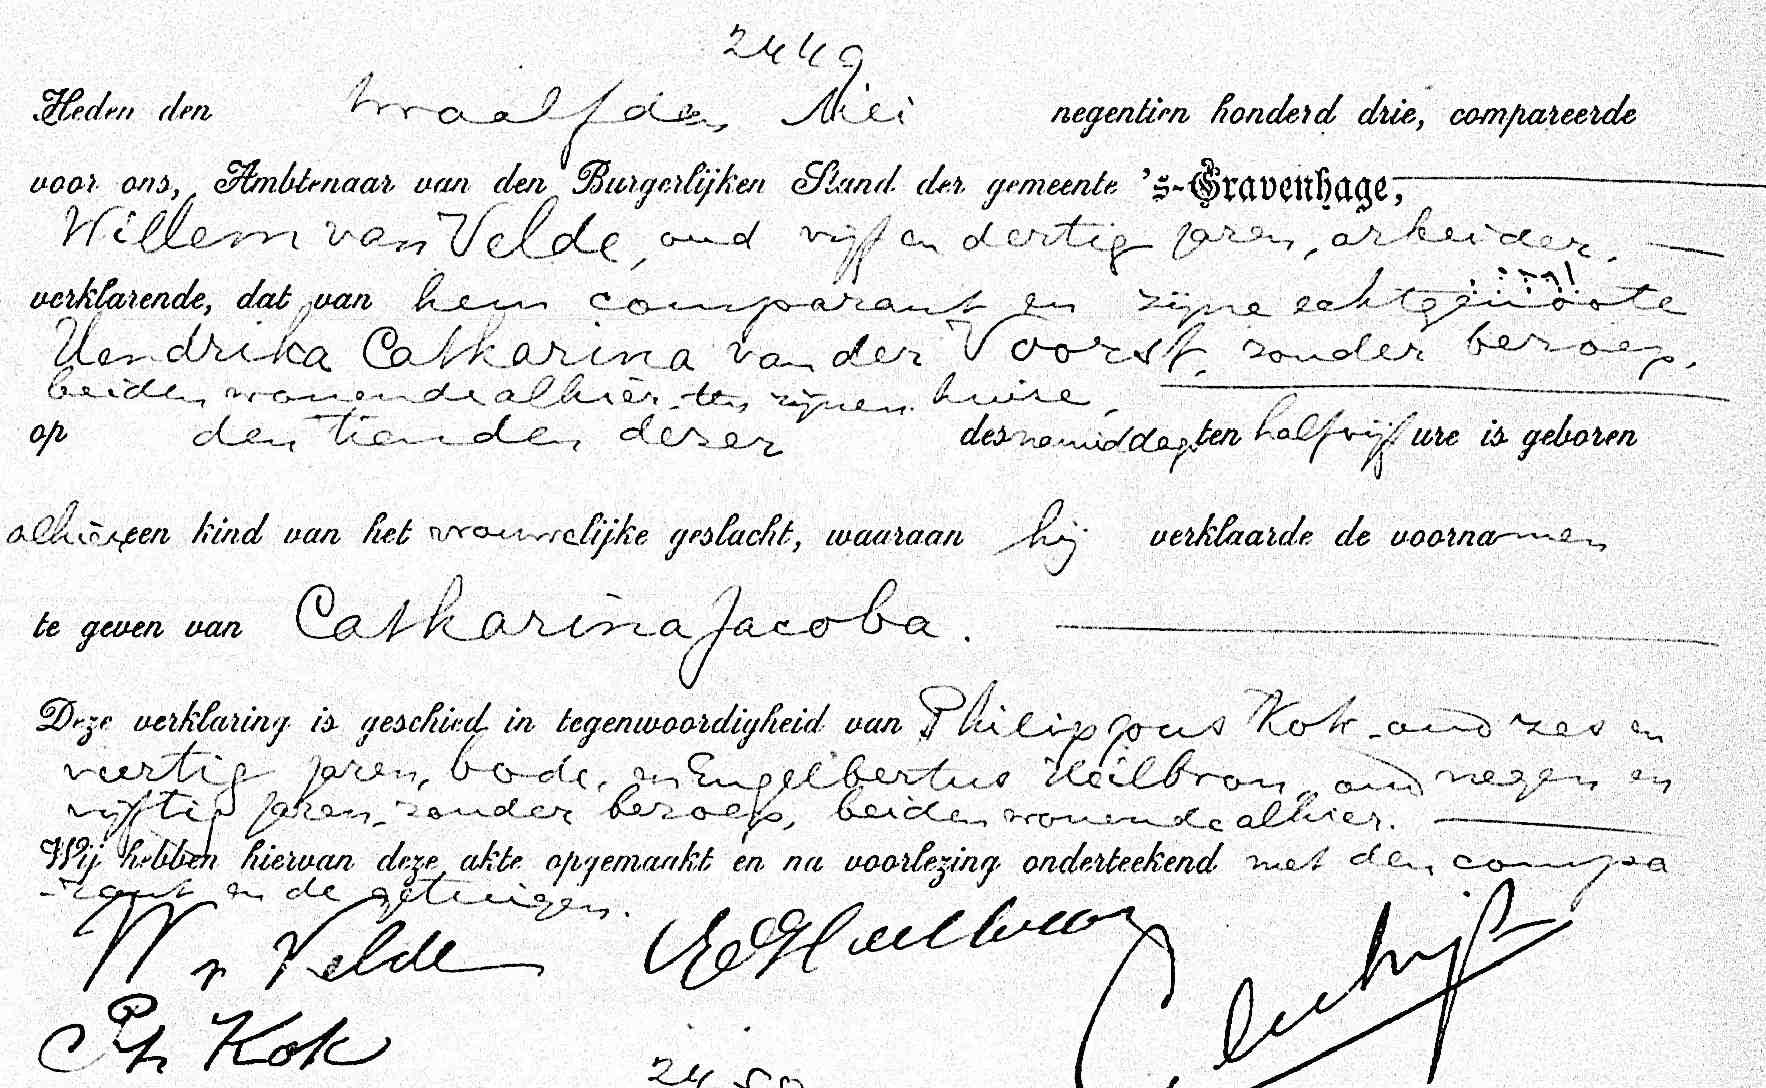 2449
Heden den twaalfden Mei negentien honderd drie, compareerde
voor ons, Ambtenaar van den Burgerlijken Stand der gemeente 's-Gravenhage,
Willem van Velde, oud vijf en dertig jaren, arbeider,
verklarende, dat van hem comparant en zijne echtgenoote
Hendrika Catharina van der Voorst, zonder beroep,
beiden wonende alhier, ten zijnen huize,
op den tienden dezer des namiddags ten half vijf ure is geboren
alhier een kind van het vrouwelijke geslacht, waaraan hij verklaarde de voornamen
te geven van Catharina Jacoba.
Deze verklaring is geschied in tegenwoordigheid van Philippus Kok, oud zes en
veertig jaren, bode, en Engelbertus Heilbron, oud negen en
vijftig jaren, zonder beroep, beiden wonende alhier.
Wij hebben hiervan deze akte opgemaakt en na voorlezing onderteekend met den compa
-rant en de getuigen.
W v Velde
Ph Kok